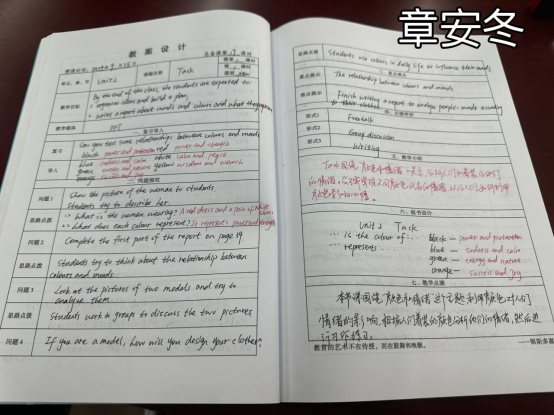 章安冬
教案设计
总备课第17课时
授课时间：2024年9月25日
单元、章、节 Unit2 课题名称 Task
教学目标
By the end of the class, the students are expected to:
1. organise ideas and build a plan;
2. write a report about moods and colours and what they represent
教学媒体 PPT
一、复习导入
复习
导入
Can you tell some relationships between colours and moods
black power and protection red power and strength
blue sadness and calm white calm and peace
green energy and nature yellow wisdom and warmth
二、问题探究
问题1
Show the picture of the woman to students
Students try to describe her.
思路点数
What is the woman wearing? A red dress and a pair of white shoes.
What does each colour represent? It represents power and strength
问题2 Complete the first part of the report on page 19.
思路点数
Students try to think about the relationship between
colours and moods
问题3
Look at the pictures of two models and try to
analyse them
思路点数 Students work in groups to discuss the two pictures
问题4 If you are a model, how will you design your clothes?
思路点数 Students use colours in daily life to influence their moods
重点揭示 The relationship between colours and moods
难点揭示
Finish writing a report to analyse people's moods according
to their clothes
形式1 Freetalk
形式2 Group discussion
形式3 Writing
五、教学小结
六、板书设计
Unit 2 Task
... is the colour of ...
... represents
black — power and protection
blue — sadness and calm
green — energy and nature
orange — success and joy
七、教学点滴
本节课围绕"颜色和情绪"的主题，利用颜色对人们
情绪的影响，根据人们着装的颜色分析他们的情绪，然后进
行习作练习。
教育的艺术不在传授，而在鼓舞和唤醒。
——第斯多惠